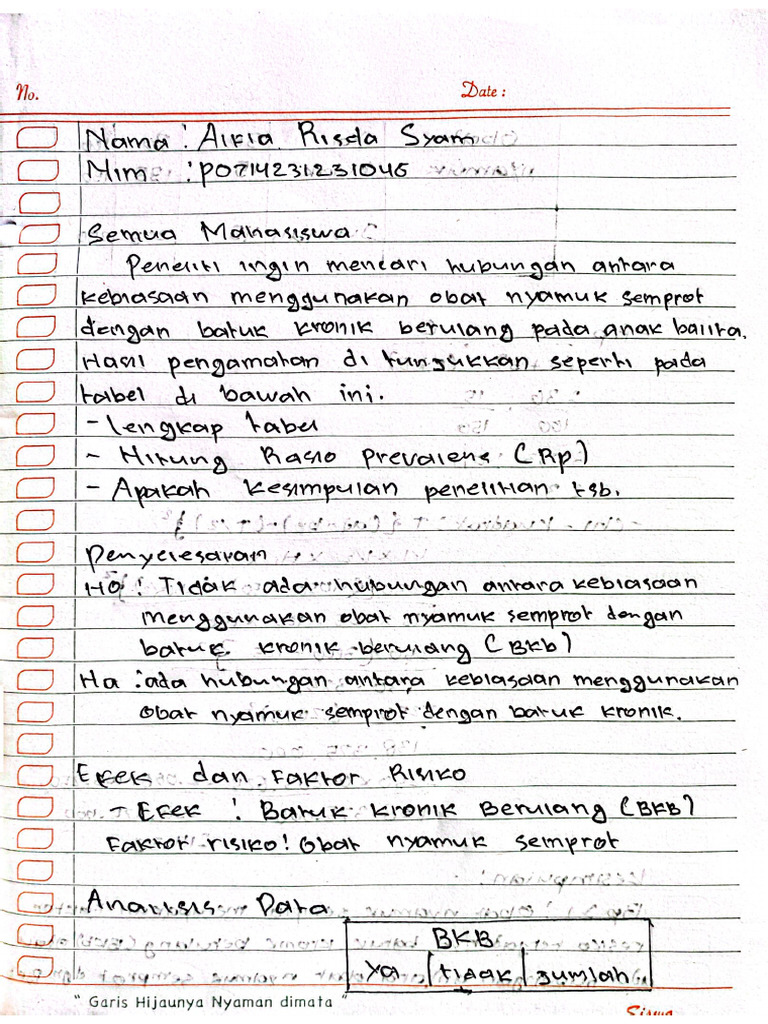 No.
Date :
Nama : Alfia Risda Syam
Nim : P0714231231045
Semua Mahasiswa :
Peneliti ingin mencari hubungan antara
kebiasaan menggunakan obat nyamuk semprot
dengan batuk kronik berulang pada anak balita.
Hasil pengamatan di tunjukkan seperti pada
tabel di bawah ini.
- lengkap tabel
- Hitung Rasio Prevalens (Rp)
- Apakah kesimpulan penelitian tsb.
Penyelesaian
Ho : Tidak ada hubungan antara kebiasaan
menggunakan obat nyamuk semprot dengan
batuk kronik berulang (BKb)
Ha : ada hubungan antara kebiasaan menggunakan
obat nyamuk semprot dengan batuk kronik.
Efek dan Faktor Risiko
- Efek : Batuk kronik Berulang (BKB)
Faktor risiko : Obat nyamuk semprot
Analisis Data
BKB
Ya tidak Jumlah
" Garis Hijaunya Nyaman dimata "